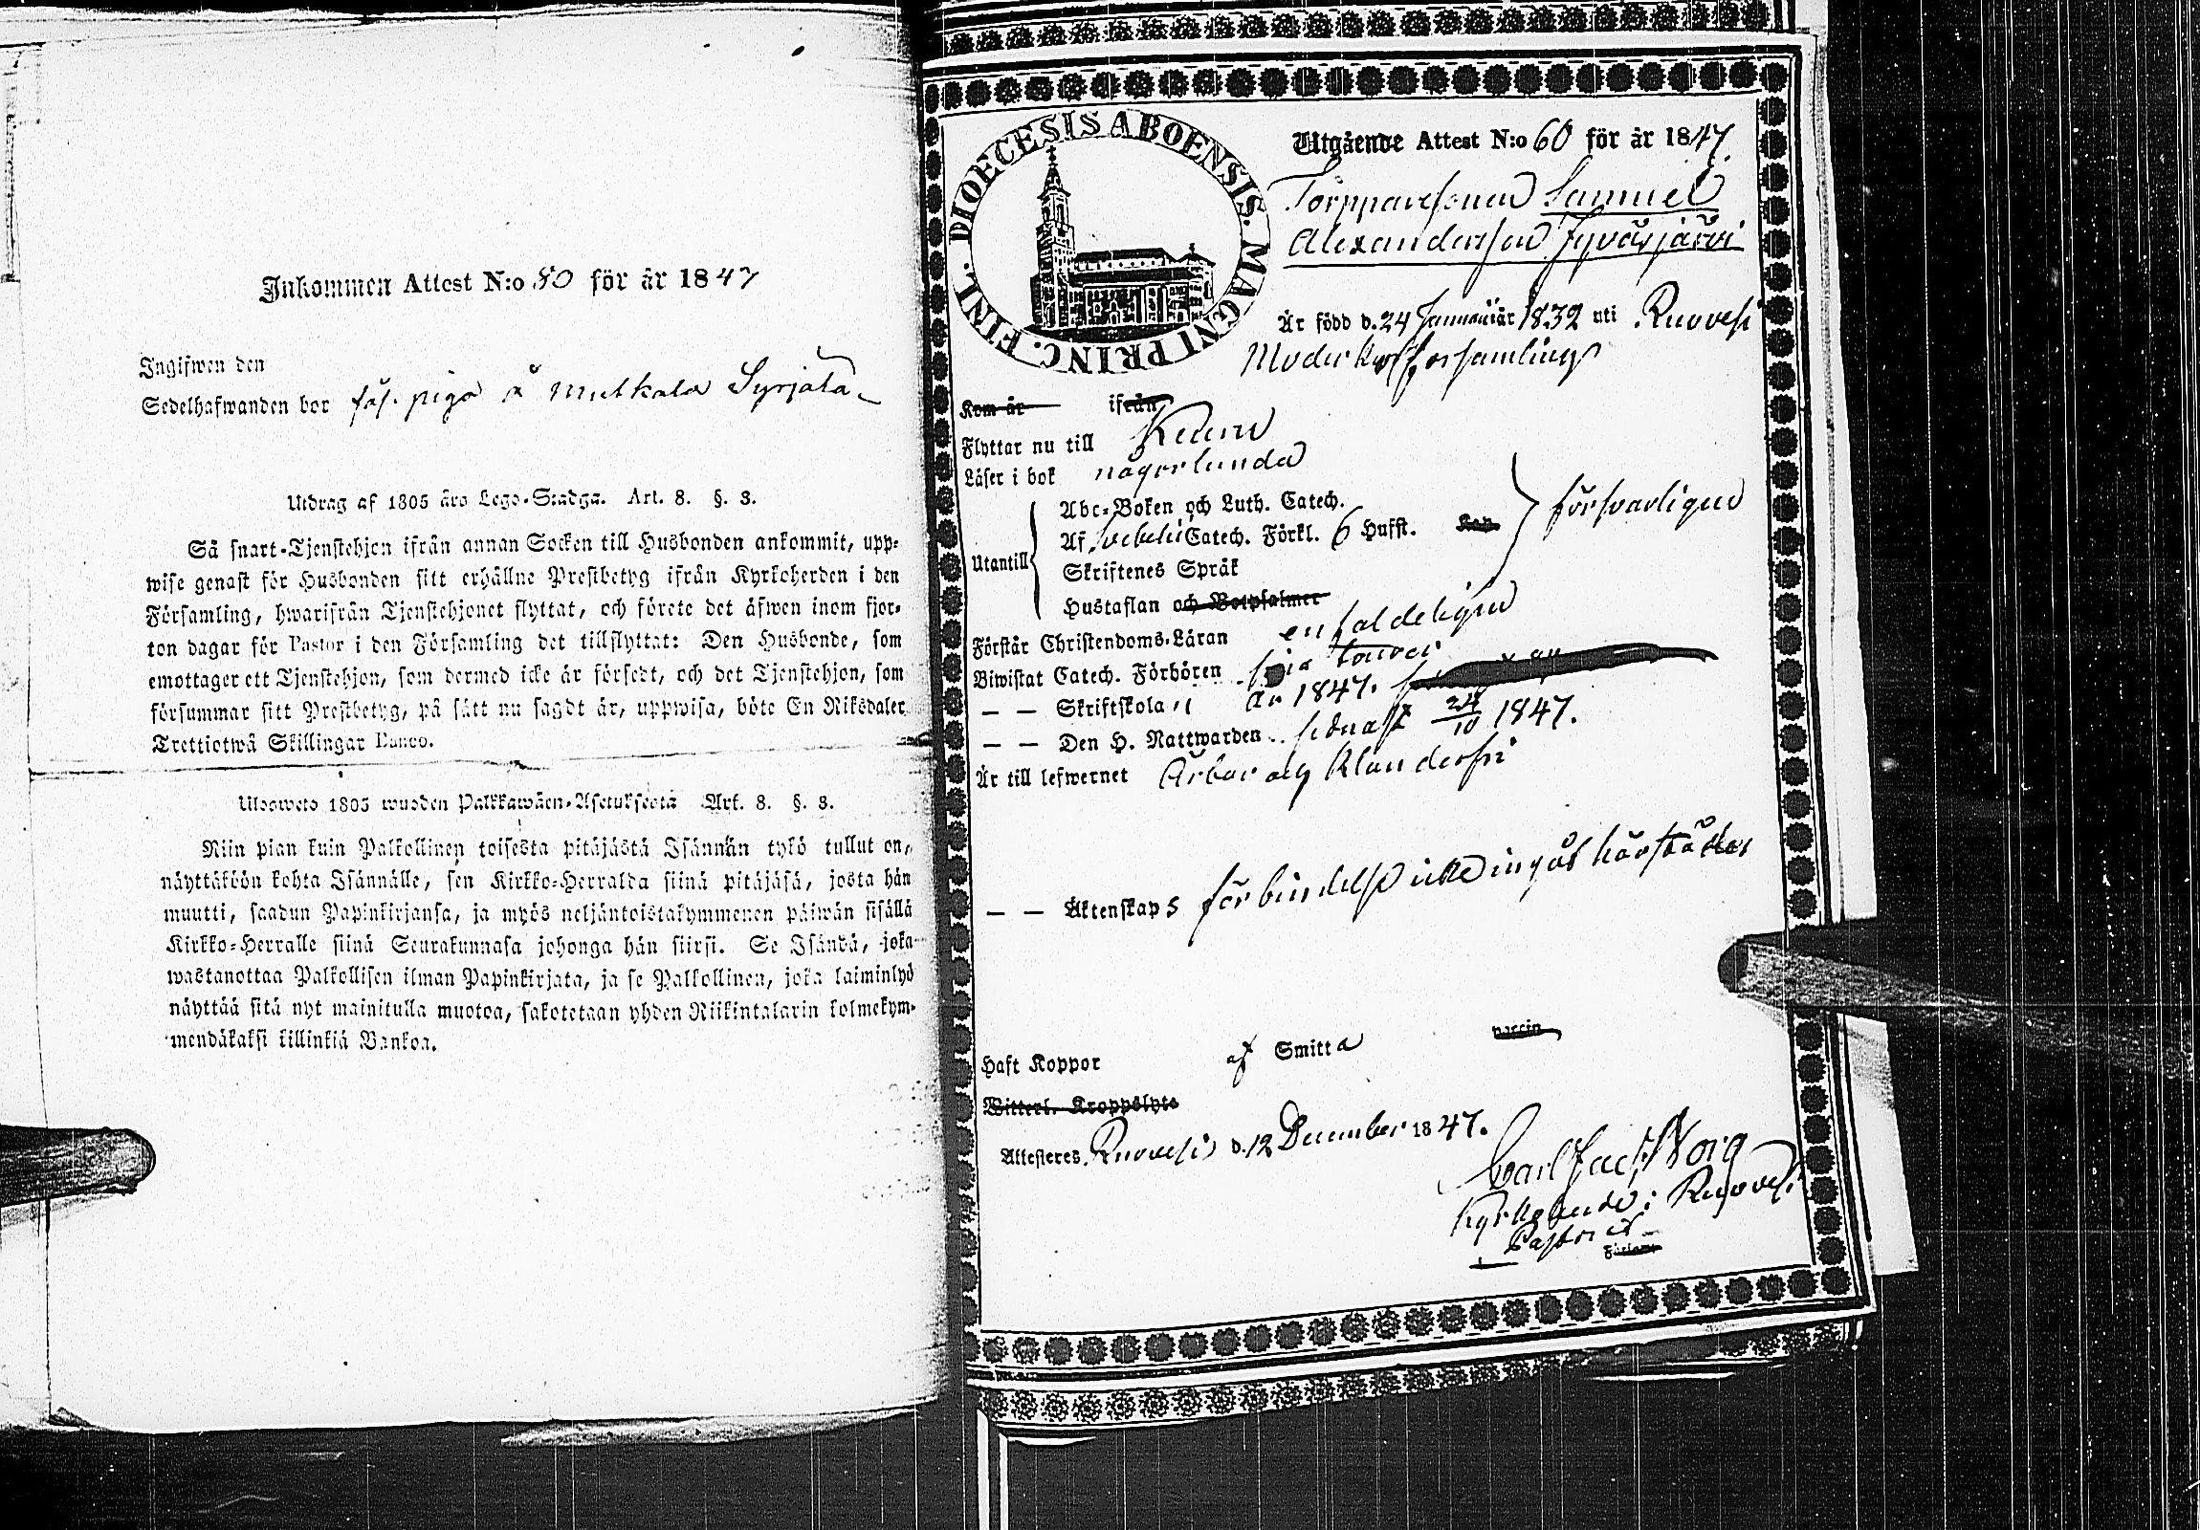 Inkommen Attest N:o 80 för år 1847
Ingifwen den
Sedelhafwanden bor såf. piga å Mulkala Syrjälä
Utdrag af 1805 års Lego-Stadga. Art. 8. §. 3.
Så snart Tjenstehjon ifrån annan Socken till Husbonden ankommit, upp-
wise genast för Husbonden sitt erhållne Prestbetyg ifrån Kyrkoherden i den
Församling, hwarifrån Tjenstehjonet flyttat, och förete det äfwen inom fjor-
ton dagar för Pastor i den Församling det tillflyttat: Den Husbonde, som
emottager ett Tjenstehjon, som dermed icke är försedt, och det Tjenstehjon, som
försummar sitt Prestbetyg, på sätt nu sagdt är, uppwisa, böte En Riksdaler
Trettiotwå Skillingar Banco.
Ulosweto 1805 wuoden Palkkawäen-Asetuksesta Art. 8. §. 3.
Niin pian kuin Palkollinen toisesta pitäjästä Isännän tykö tullut on,
näyttäköön kohta Isännälle, sen Kirkko-Herralda siinä pitäjäsä, josta hän
muutti, saadun Papinkirjansa, ja myös neljäntoistakymmenen päiwän sisällä
Kirkko-Herralle siinä Seurakunnasa johonga hän siirsi. Se Isändä, joka
wastanottaa Palkollisen ilman Papinkirjata, ja se Palkollinen, joka laiminlyö
näyttää sitä nyt mainitulla muotoa, sakotetaan yhden Riikintalarin kolmekym-
mendäkaksi killinkiä Bankoa.
DIOECESIS ABOENSIS. MAGNI PRINC. FINL.
Utgående Attest N:o 60 för år 1847.
Torpparesonen Samuel
Alexandersson Jyväsjärvi
Är född d. 24 Januari år 1832 uti Ruovesi
Moderkyrkoförsamling
Kom år ifrån
Flyttar nu till Keuru
Läser i bok någorlunda
Abc-Boken och Luth. Catech.
Af Svebelii Catech. Förkl. 6 Hufst. Kap. försvarligen
Utantill
Skriftenes Språk
Hustaflan och Botpsalmer
Förstår Christendoms-Läran enfaldeligen
Biwistat Catech. Förhören
— — Skriftskola År 1847.
— — Den H. Nattwarden sednast 24/10 1847.
Är till lefwernet Ärbar och klanderfri
— — Äktenskaps förbindelse icke ingått härstädes
Haft Koppor af Smitta vaccin
Witterl. Kroppslyte
Attesteres. Ruovesi d. 12 December 1847.
Carl Jac. Noring
Kyrkoherde i Ruovesi
Pastorat